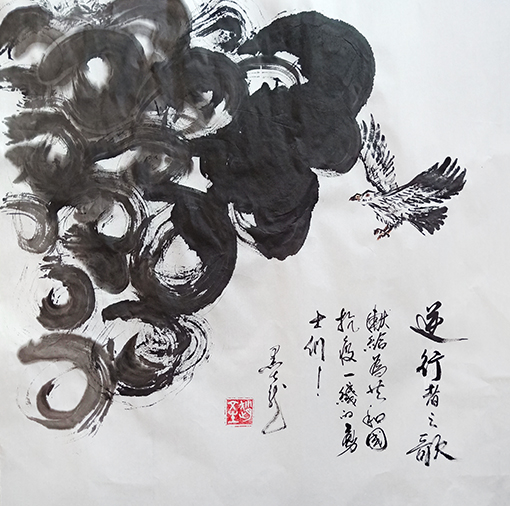 逆行者之歌
献给为共和国
抗疫一线的勇
士们！